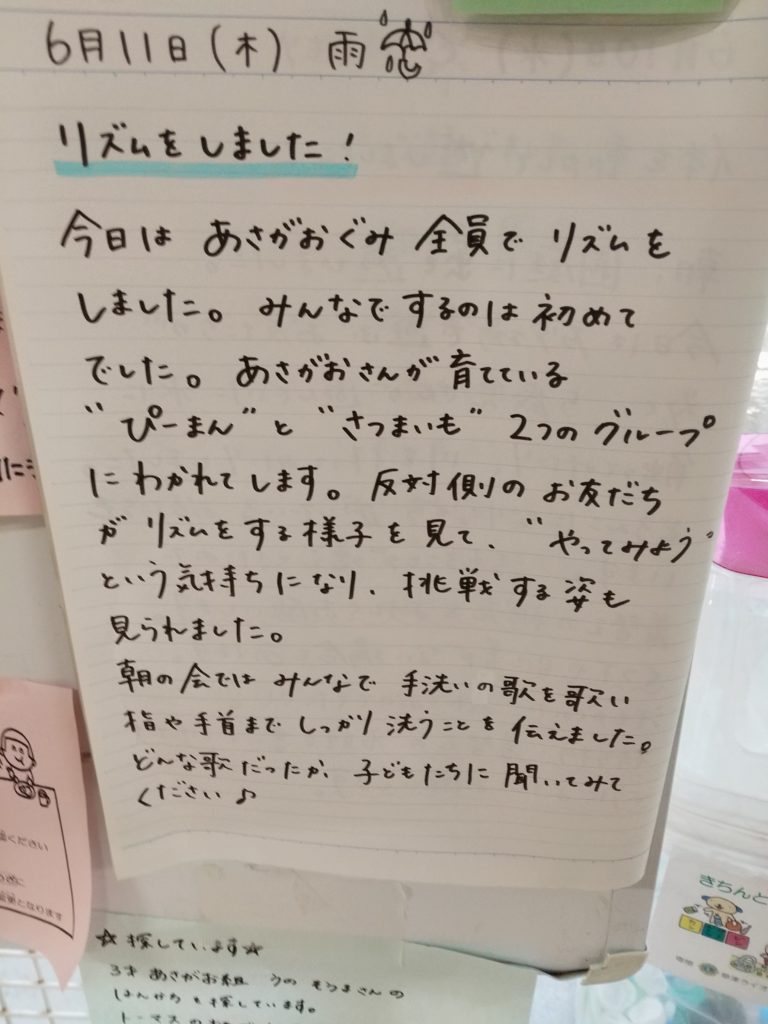 6月11日(木) 雨
リズムをしました!
今日は あさがおぐみ 全員で リズムを
しました。みんなでするのは初めて
でした。あさがおさんが育てている
"ぴーまん"と"さつまいも" 2つのグループ
にわかれてします。反対側のお友だち
がリズムをする様子を見て、"やってみよう"
という気持ちになり、挑戦する姿も
見られました。
朝の会ではみんなで 手洗いの歌を歌い
指や手首までしっかり洗うことを伝えました。
どんな歌だったか、子どもたちに聞いてみて
ください♪
ください
変更となります
☆探しています☆
3才 あさがお組
はんかちを探しています。
トーマスの
きちんと